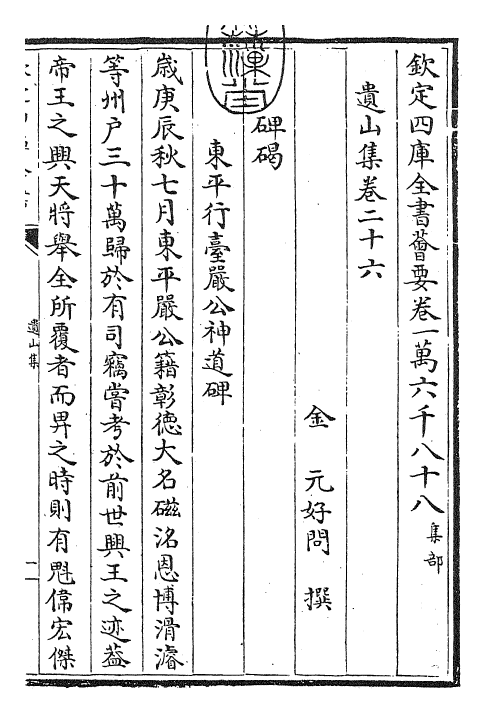 欽定四庫全書薈要卷一萬六千八十八 集部
遺山集卷二十六
金 元好問 撰
碑碣
東平行臺嚴公神道碑
歳庚辰秋七月東平嚴公籍彰徳大名磁洺恩博滑濬
等州户三十萬歸於有司竊嘗考於前世興王之迹葢
帝王之興天將舉全所覆者而畀之時則有魁偉宏傑
遺山集
一